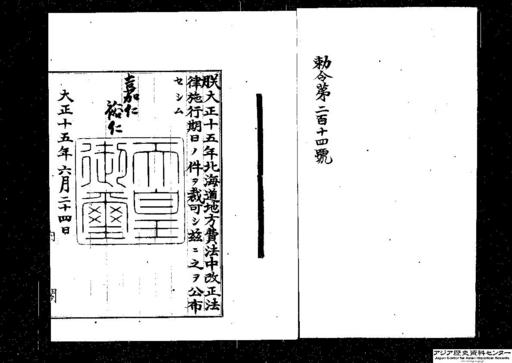 勅令第二百十四號
朕大正十五年北海道地方費法中改正法
律施行期日ノ件ヲ裁可シ茲ニ之ヲ公布
セシム
嘉仁
裕仁
天皇
御璽
大正十五年六月二十四日
内閣
アジア歴史資料センター
Japan Center for Asian Historical Records